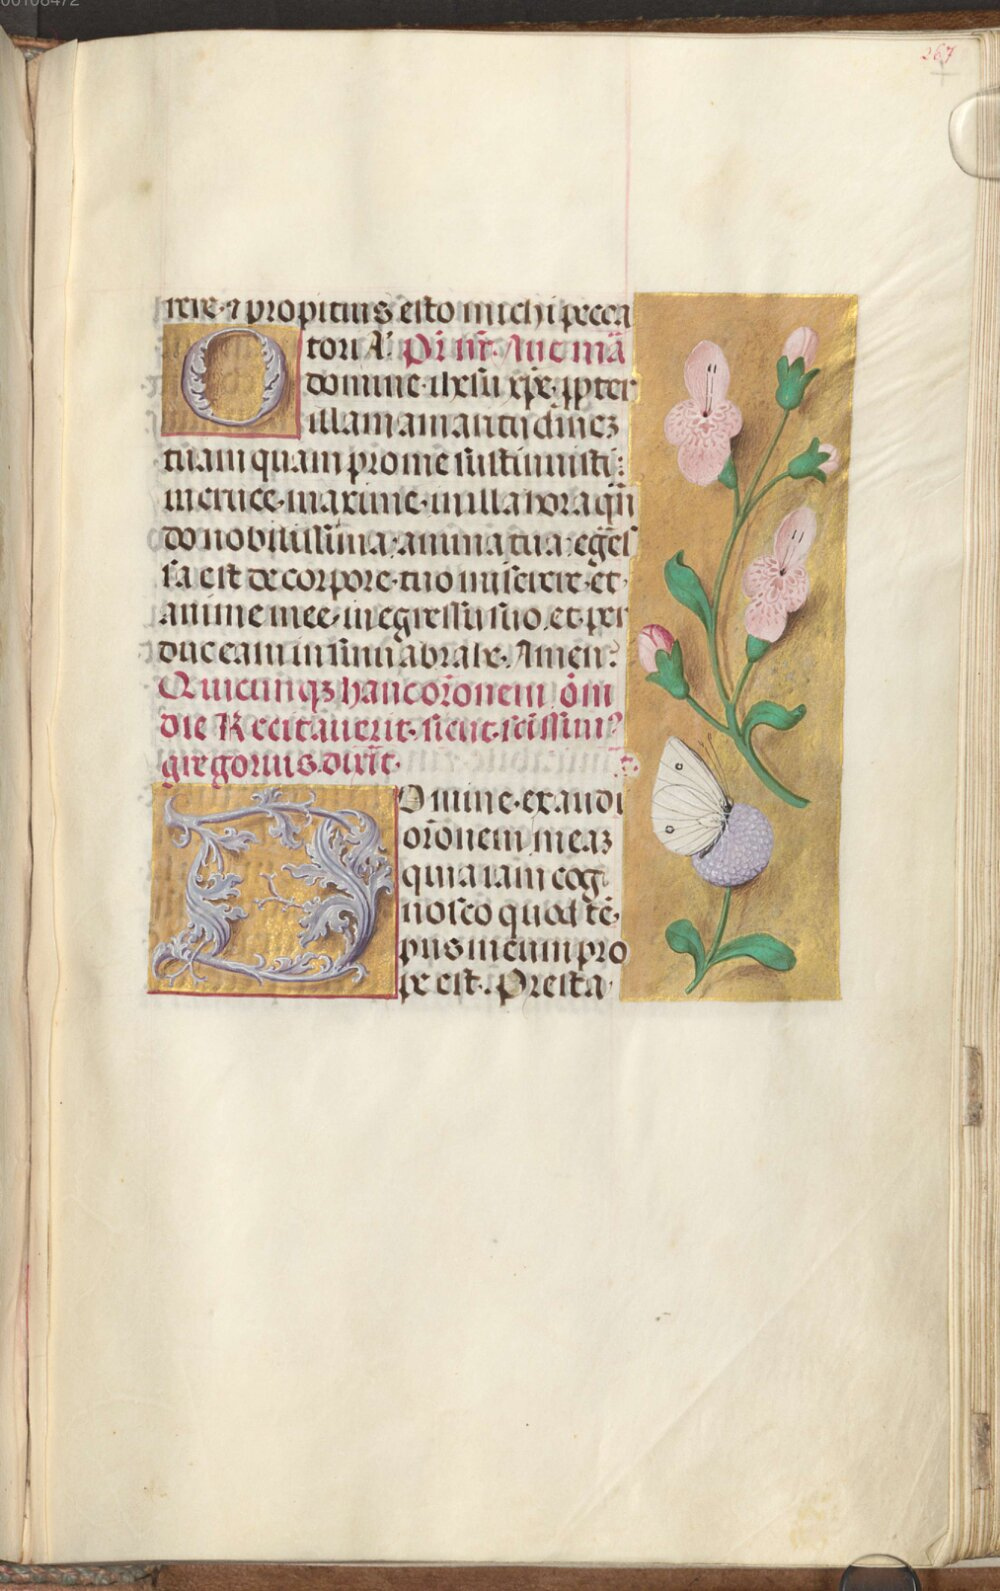 00108472
267
rere · ⁊ propitius esto michi pecca
tori A. Pr̄ nr̄. Aue mā
O domine · ihesu xp̄e · ꝓpter
illam amaritudineꝫ
tuam quam pro me sustinuisti:
in cruce · maxime · in illa hora qn̄
do nobilissima · anima tua · egēs
sa est de corpore · tuo miserere · et
anime mee · in egressu suo, et per
duc eam in sinu abrahe. Amen:
Quicunqꝫ hanc orōnem, om̄i
die Recitauerit · sicut · sc̄issim9
gregorius. dixit.
DOmine · exaudi
orōnem meaꝫ
quia iam cog
nosco quod tē
pus meum pro
pe est. Presta